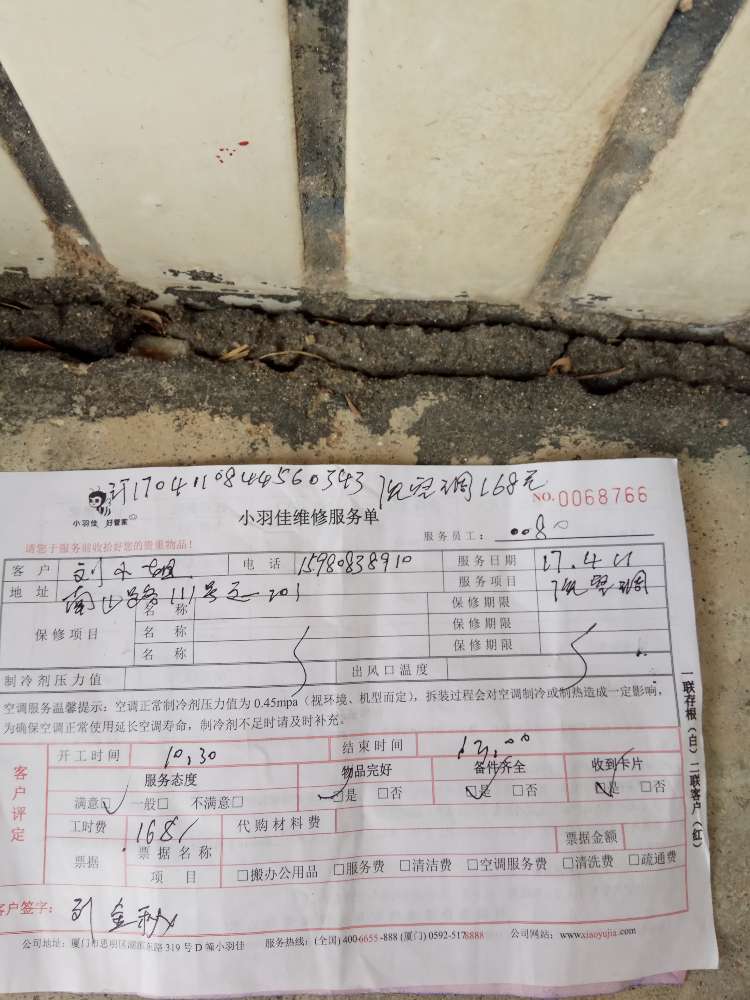 订1704110844560343 168元
NO.0068766
小羽佳 好管家
小羽佳维修服务单
服务员工: 0080
请您于服务前收拾好您的贵重物品!
客户 刘小姐 电话 15980838910 服务日期 17.4.11
地址 南山路111号 201 服务项目
保修项目 名称 保修期限
名称 保修期限
名称 保修期限
制冷剂压力值 出风口温度
空调服务温馨提示:空调正常制冷剂压力值为 0.45mpa(视环境、机型而定),拆装过程会对空调制冷或制热造成一定影响,
为确保空调正常使用延长空调寿命,制冷剂不足时请及时补充。
客户评定
开工时间 10.30 结束时间 13.00
服务态度 物品完好 备件齐全 收到卡片
满意□ 一般□ 不满意□ □是 □否 □是 □否 □是 □否
工时费 168/ 代购材料费
票据 票据名称 票据金额
项目 □搬办公用品 □服务费 □清洁费 □空调服务费 □清洗费 □疏通费
客户签字: 刘
公司地址:厦门市思明区湖滨东路 319 号 D 幢小羽佳 服务热线:(全国)400-6655-888 (厦门)0592-5178888 公司网站:www.xiaoyujia.com
一联存根(白)二联客户(红)